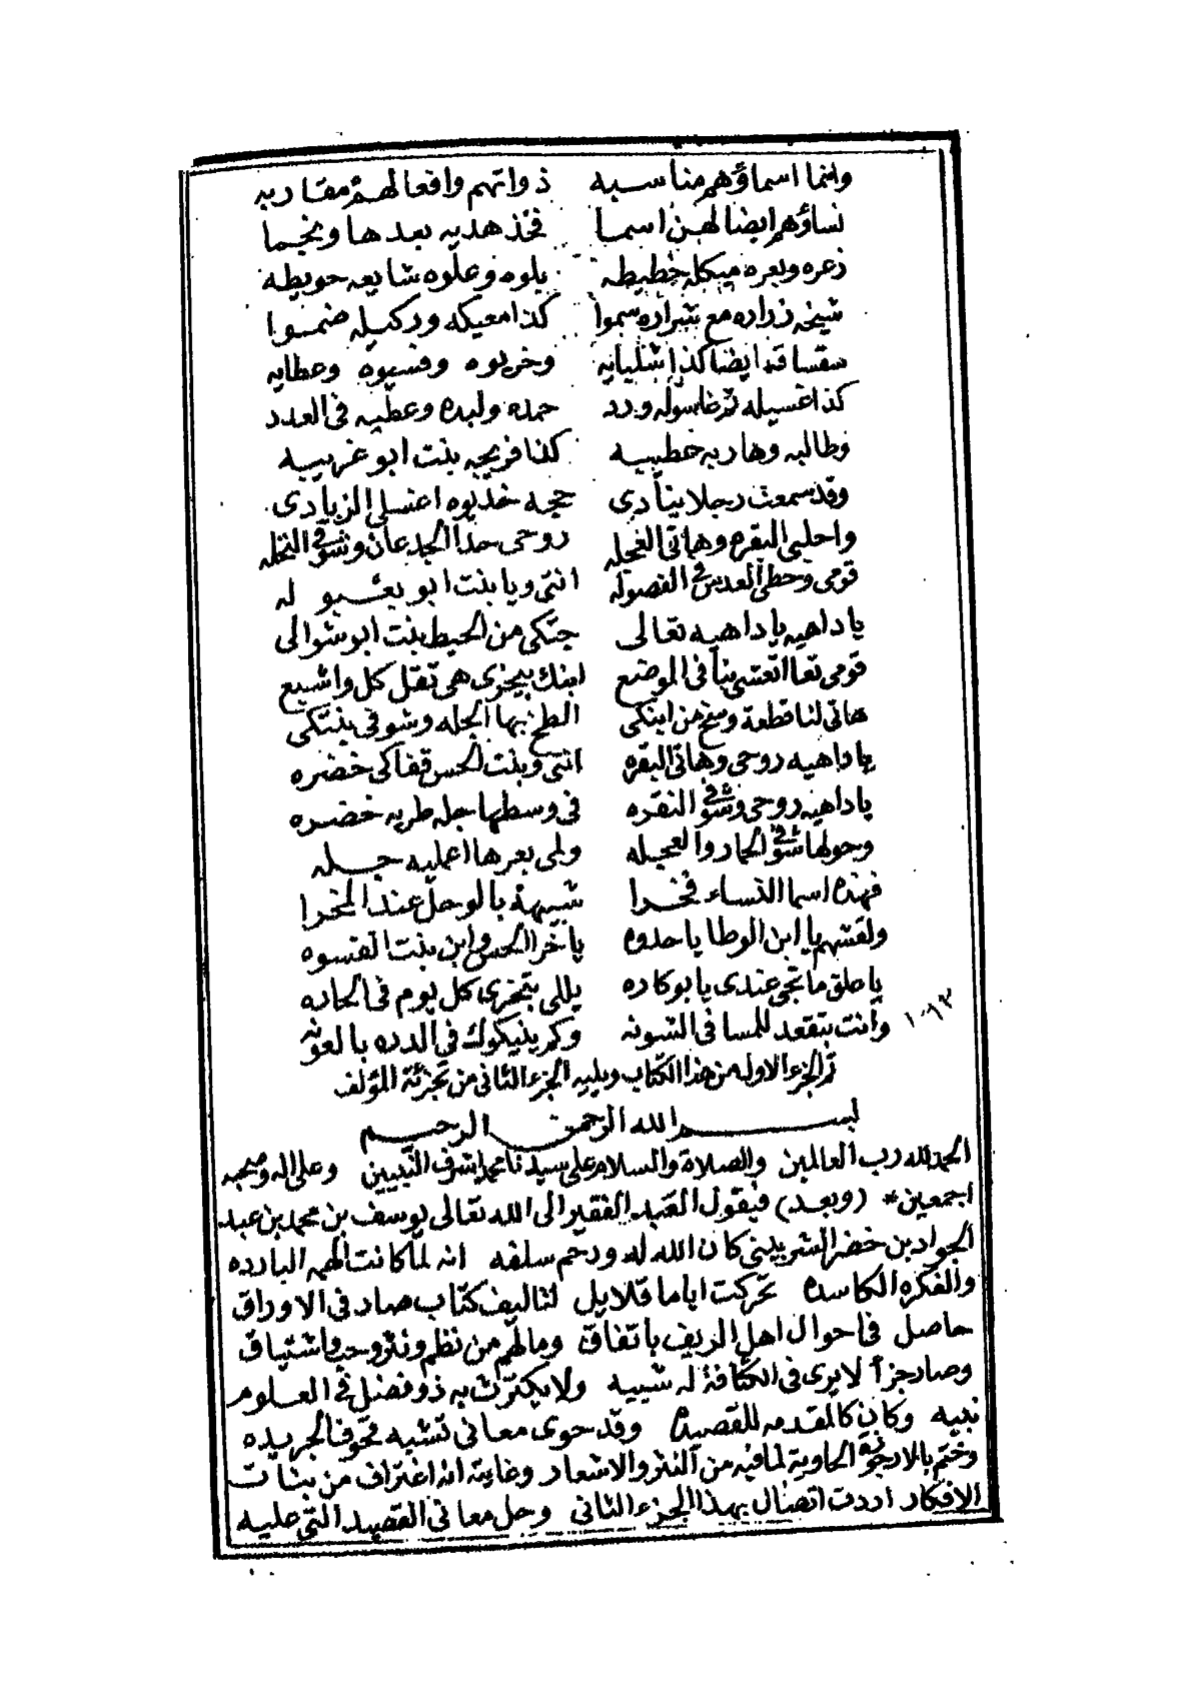 وانما اسماؤهم مناسبه ذواتهم وافعالهم مقاربه
نساؤهم ايضا لهن اسما فخذ هديه بعدها ونجما
زعره وبعره ميكله خطيطه بلوه وعلوه شايعه حويطه
شيخه زراده مع شراره سموا كذا معيكه وركيله ضموا
سقساقه ايضا كذا شلبايه وخريوه وفسيوه وعطايه
كذا غسيله ثم غاسوله ورد حمده ولبده وعطيه فى العدد
وطالبه وهاربه خطيبه كذا فريجه بنت ابو غريبه
وقد سمعت رجلا ينادى حجيه خديوه اغسلى الزبادى
واحلبى البقره وهاتى العجله روحى حدا الجدعان وشوفى النخله
قومى وحطى العدس فى القصوله انتى ويا بنت ابو بعشبو له
يا داهيه يا داهيه تعالى جتكى من الحيط بنت ابو شوالى
قومى تعا اتعشى بنا فى الموضع ابنك بيخرى هى تقل كل واشبع
هاتى لنا قطعة وسخ من ابنكى الطخ بها الجله وشوفى بنتكى
يا داهيه روحى وهاتى البقره انتى وبنت الحس قفاكى خضره
يا داهيه روحى وشوفى النقره فى وسطها جله طريه خضره
وحولها شوفى الحمار والعجيله ولمى بعرها اعمليه جله
فهذه اسما النساء فخرا شبيهة بالوحل عند المخرا
ولقبهم يا ابن الوطا يا حدوه يا خرا الحس وابن بنت الفسوه
يا صلق ما تجى عندى يا بو كاده ياللى بتخرى كل يوم فى الحاره
وانت بتقعد للمسا فى الشونه وكم ينيكوك فى الدره بالعونه
١٠١٣
تم الجزء الاول من هذا الكتاب ويليه الجزء الثانى من تجزئة المؤلف
بسم الله الرحمن الرحيم
الحمد لله رب العالمين والصلاة والسلام على سيدنا محمد اشرف النبيين وعلى اله وصحبه
اجمعين * (وبعد) فيقول العبد الفقير الى الله تعالى يوسف بن محمد بن عبد
الجواد بن خضر الشربينى كان الله له ورحم سلفه انه لما كانت الهمه البارده
والفكره الكاسده تحركت اياما قلايل لتاليف كتاب صار فى الاوراق
حاصل فى احوال اهل الريف باتفاق ومالهم من نظم ونثر وحب واشتياق
وصار جزأ لا يرى فى الكثافة له شبيه ولا يكترث به ذو فضل فى العلوم
نبيه وكان كالمقدمه للقصيده وقد حوى معانى تشبه محوف الجريده
وختم بالارجوزة الحاوية لما فيه من النثر والاشعار وغايته انه اغتراف من بنات
الافكار اردت اتصال بهذا الجزء الثانى وحل معانى القصيد التى عليه